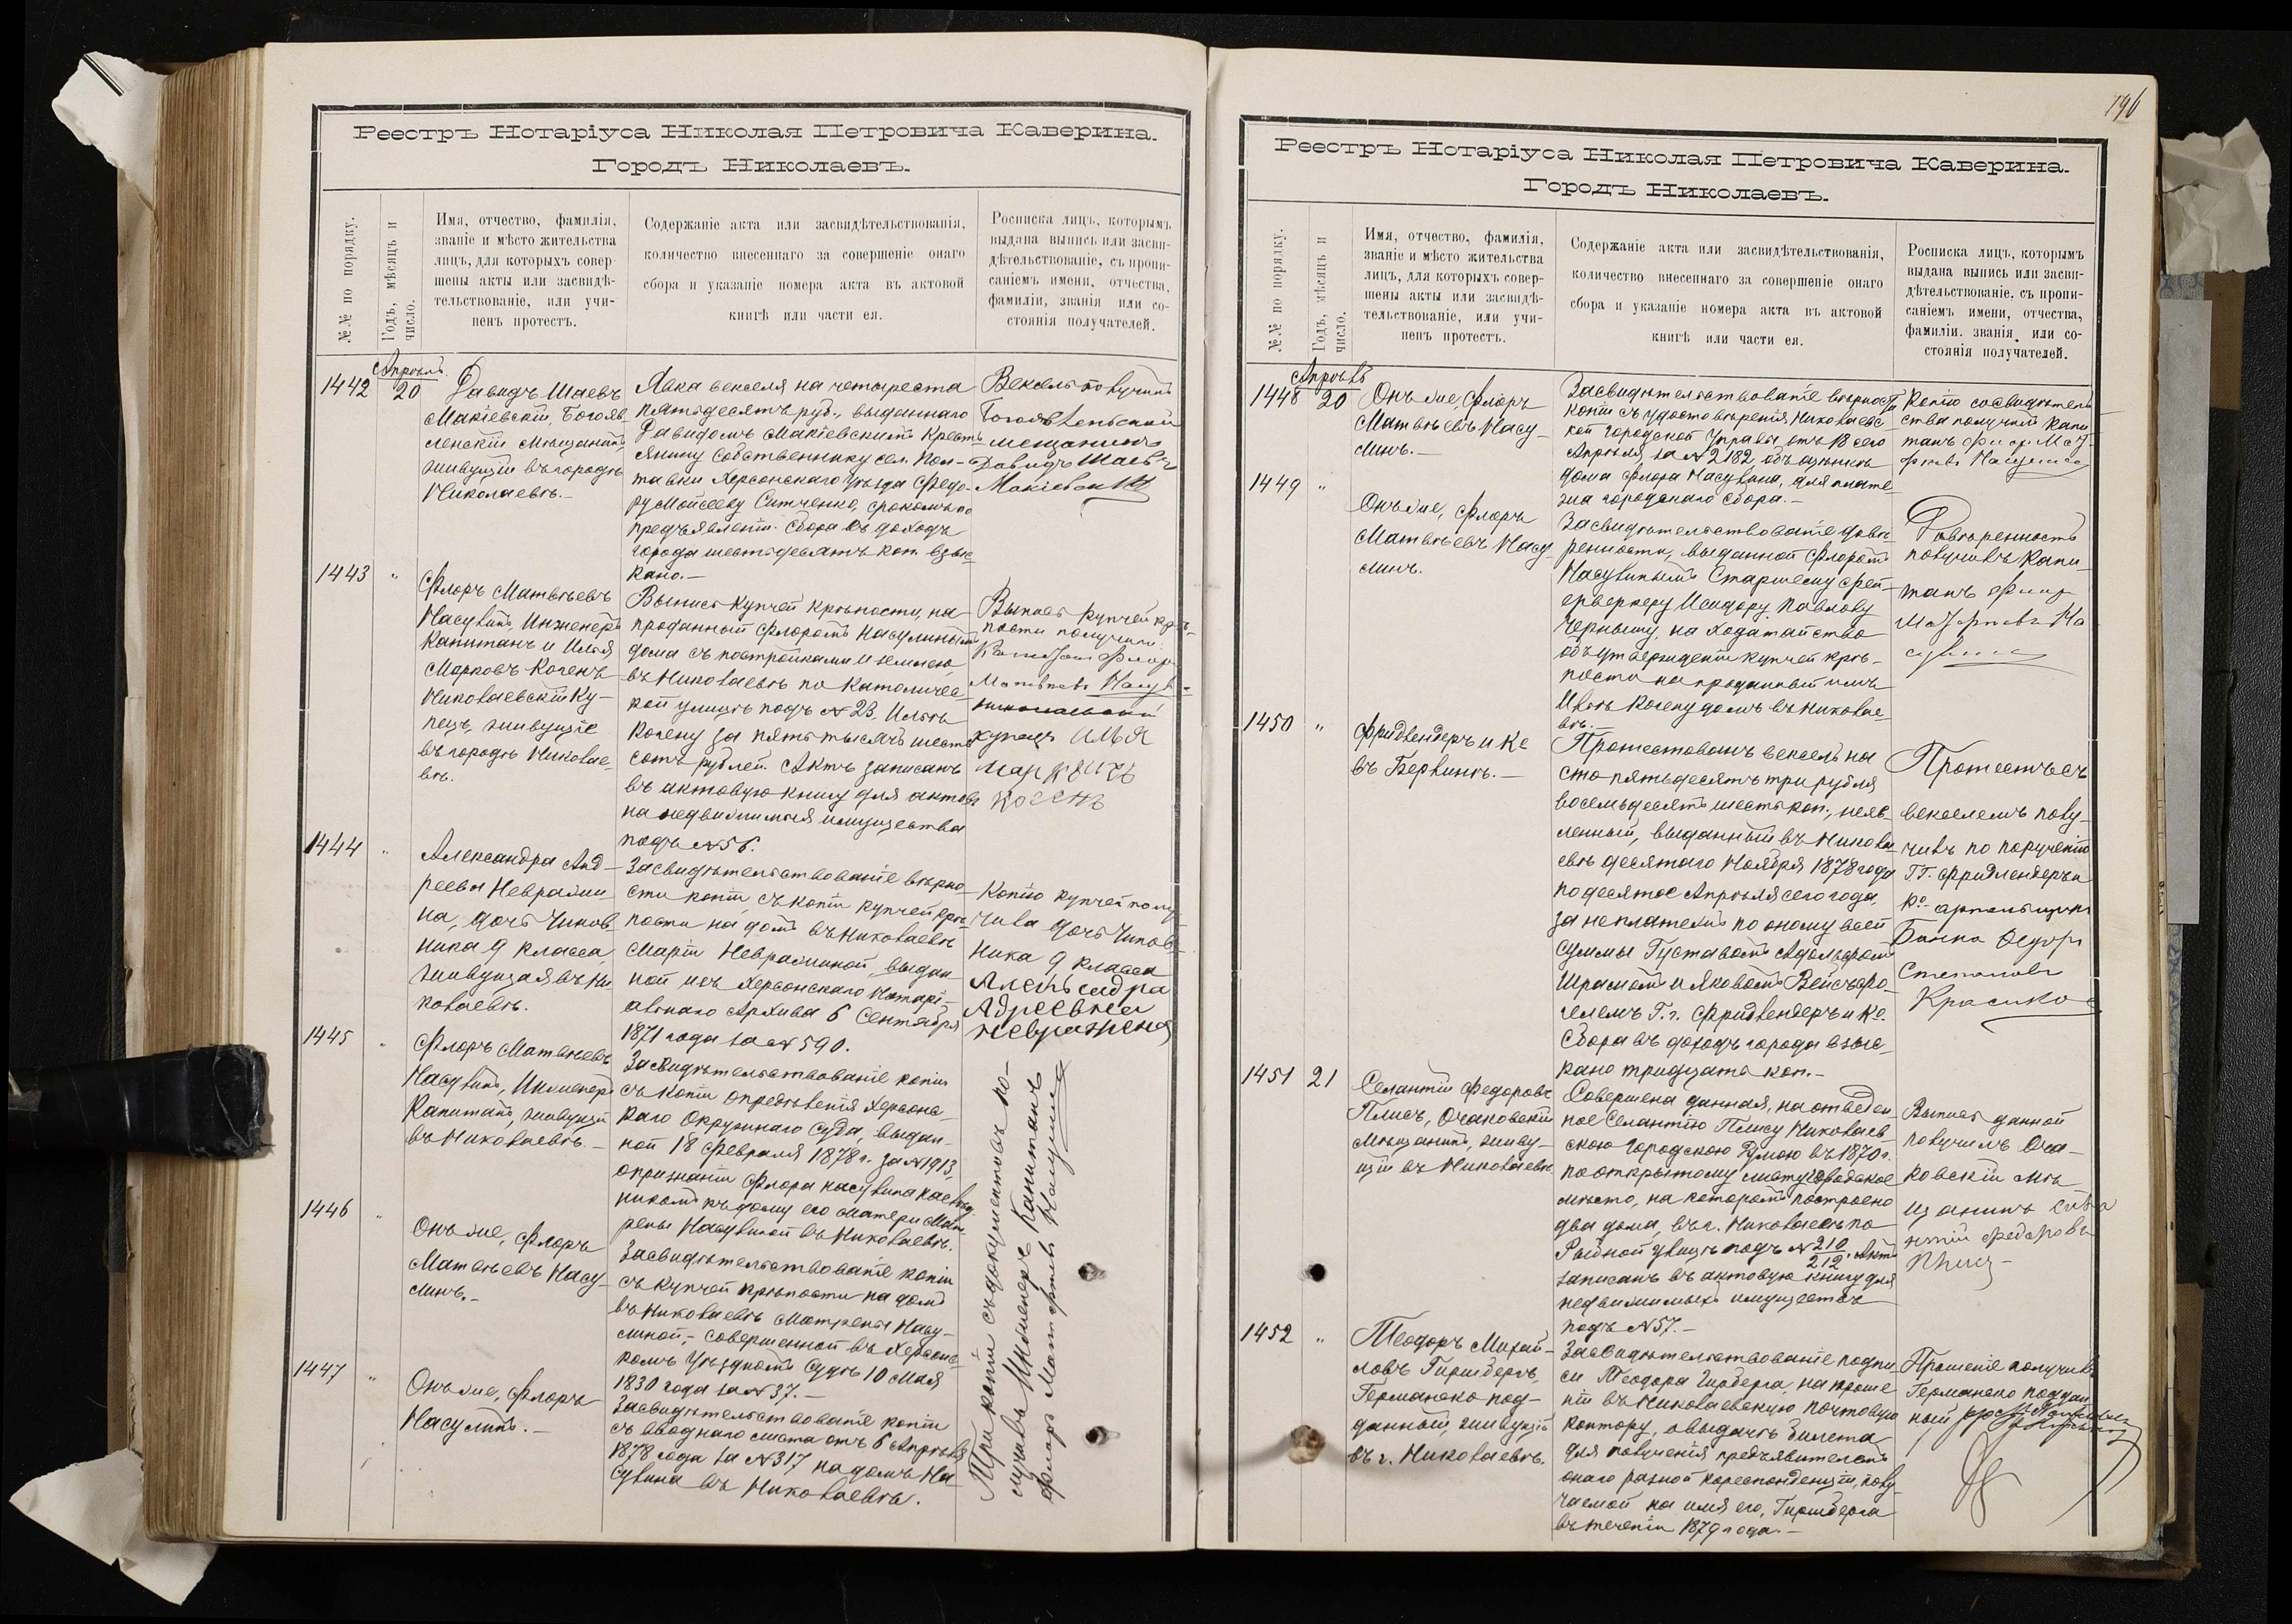 Реестръ Нотаріуса Николая Петровича Каверина.
Городъ Николаевъ.
№№ по порядку.
Годъ, мѣсяцъ и
число.
Имя, отчество, фамилія,
званіе и мѣсто жительства
лицъ, для которыхъ совер-
шены акты или засвидѣ-
тельствованіе, или учи-
ненъ протестъ.
Содержаніе акта или засвидѣтельствованія,
количество внесеннаго за совершеніе онаго
сбора и указаніе номера акта въ актовой
книгѣ или части ея.
Росписка лицъ, которымъ
выдана выпись или засви-
дѣтельствованіе, съ пропи-
саніемъ имени, отчества,
фамиліи, званія или со-
стоянія получателей.
Апрѣль
1442
20
Давидъ Шаевъ
Макіевскій, Богояв
ленскій Мѣщанинъ,
живущій въ городѣ
Николаевѣ.-
Явка векселя на четыреста
пятьдесятъ руб., выданнаго
Давидомъ Макіевскимъ Кресть
янину Собственнику сел. Пол-
тавки Херсонскаго Уѣзда Федо-
ру Мойсееву Ситченко, срокомъ по
предъявленіи. Сбора въ доходъ
города шестьдесятъ коп. взыс
кано.-
Вексель получилъ
Богоявленской
мещанинъ
Давидъ Шаевъ
Макіевскій
1443
"
Флоръ Матвѣевъ
Насулинъ, Инженеръ
Капитанъ и Илья
Марковъ Когенъ
Николаевскій Ку-
пецъ, живущіе
въ городѣ Николае-
вѣ.
Выпись купчей крѣпости, на
проданный Флоромъ Насулинымъ
дома съ постройками и землею
въ Николаевѣ по Католичес
кой улицѣ подъ №23. Ильѣ
Когену за пять тысячъ шесть
сотъ рублей. Актъ записанъ
въ актовую книгу для актовъ
на недвижимыя имущества
подъ №56.
Выпись купчей крѣ-
пости получили:
Капитанъ Флоръ
Матвѣевъ Насул-
николаевскій
купецъ Илья
Марковичъ
Когенъ
1444
"
Александра Анд-
реева Невражи
на, дочь Чинов
ника 9 класса,
живущая въ Ни
колаевѣ.
Засвидѣтельствованіе вѣрно-
сти копіи, съ копіи купчей крѣ
пости на домъ въ Николаевѣ
Маріи Невражиной, выдан
ной изъ Херсонскаго Нотарі-
альнаго Архива 6 Сентября
1871 года за №590.
Копію купчей полу-
чила дочь Чинов-
ника 9 класса
Александра
Адреевна
Невражена
1445
"
Флоръ Матвѣевъ
Насулинъ, Инженеръ
Капитанъ, живущій
въ Николаевѣ.-
Засвидѣтельствованіе копіи
съ копіи опредѣленія Херсонс-
каго Окружнаго Суда, выдан-
ной 18 Февраля 1878 г. за №1913,
опризнаніи Флора Насулина наслѣд
никомъ къ дому его матери Мат-
рены Насулиной въ Николаевѣ.
1446
"
Онъ же, Флоръ
Матвѣевъ Насу-
линъ.-
Засвидѣтельствованіе копіи
съ купчей крѣпости на домъ
въ Николаевѣ Матрены Насу-
линой,- совершенной въ Херсонс-
комъ Уѣздномъ Судѣ 10 Мая
1830 года за №37.-
1447
"
Онъ же, Флоръ
Насулинъ.-
Засвидѣтельствованіе копіи
съ вводнаго листа отъ 6 Апрѣля
1878 года за №317 на домъ На-
сулина въ Николаевѣ.
Три копіи съ документовъ по-
лучилъ Инженеръ Капитанъ
Флоръ Матвѣевъ Насулинъ
196
Реестръ Нотаріуса Николая Петровича Каверина.
Городъ Николаевъ.
№№ по порядку.
Годъ, мѣсяцъ и
число.
Имя, отчество, фамилія,
званіе и мѣсто жительства
лицъ, для которыхъ совер-
шены акты или засвидѣ-
тельствованіе, или учи-
ненъ протестъ.
Содержаніе акта или засвидѣтельствованія,
количество внесеннаго за совершеніе онаго
сбора и указаніе номера акта въ актовой
книгѣ или части ея.
Росписка лицъ, которымъ
выдана выпись или засви-
дѣтельствованіе, съ пропи-
саніемъ имени, отчества,
фамиліи, званія или со-
стоянія получателей.
Апрѣль
1448
20
Онъ же, Флоръ
Матвѣевъ Насу-
линъ.-
Засвидѣтельствованіе вѣрности
копіи съ удостовѣренія Николаевс-
кой городской Управы отъ 18 сего
Апрѣля за №2182, объ оцѣнкѣ
дома Флора Насулина, для плате-
жа городскаго сбора.-
Копію со свидѣтель
ства получилъ Капи
танъ Флоръ Мат-
вѣевъ Насулинъ
1449
"
Онъ же, Флоръ
Матвѣевъ Насу-
линъ.
Засвидѣтельствованіе довѣ-
ренности, выданной Флоромъ
Насулинымъ Старшему фей-
ерверкеру Исидору Павлову
Чернышу, на ходатайство
объ утвержденіи купчей крѣ-
пости на проданный имъ
Ильѣ Когену домъ въ Николае-
вѣ.-
Довѣренность
получилъ Капи-
танъ Флоръ
Матвѣевъ На
сулинъ
1450
"
Фридлендеръ и Ко
въ Берлинѣ.-
Протестованъ вексель на
сто пятьдесятъ три рубля
восемьдесятъ шесть коп., неяв
ленный, выданный въ Никола
евѣ десятаго Ноября 1878 года
по десятое Апрѣля сего года,
за неплатежъ по оному всей
суммы Густавомъ Адольфомъ
Шрамомъ и Яковомъ Вейсъфо-
гелемъ Г.г. Фридлендеръ и Ко.
Сбора въ доходъ города взыс-
кано тридцать коп.-
Протестъ съ
векселемъ полу-
чилъ по порученію
Г.Г. Фридлендеръ и
Ко артельщикъ
Банка
Степановъ
1451
21
Селантій Федоровъ
Плисъ, Очаковскій
Мѣщанинъ, живу-
щій въ Николаевѣ.
Совершена данная, на отведен
ное Селантію Плису Николаев-
скою Городскою Думою въ 1870 г.
по открытому листу городское
мѣсто, на которомъ построено
два дома, въ г. Николаевѣ по
Рыбной улицѣ подъ №210/212. Актъ
записанъ въ актовую книгу для
недвижимыхъ имуществъ
подъ №57.-
Выпись данной
получилъ Оча-
ковскій мѣ
щанинъ Сила
нтій Федоровъ
Плисъ
1452
"
Теодоръ Михай-
ловъ Гиршбергъ,
Германско под-
данный, живущій
въ г. Николаевѣ.
Засвидѣтельствованіе подпи
си Теодора Гирберга, на проше
ніи въ Николаевскую почтовую
контору, о выдачѣ билета
для полученія предъявителемъ
онаго разной кореспонденціи, полу-
чаемой на имя его, Гиршберга
въ теченіи 1879 года.-
Прошеніе получилъ
Германско поддан
ный